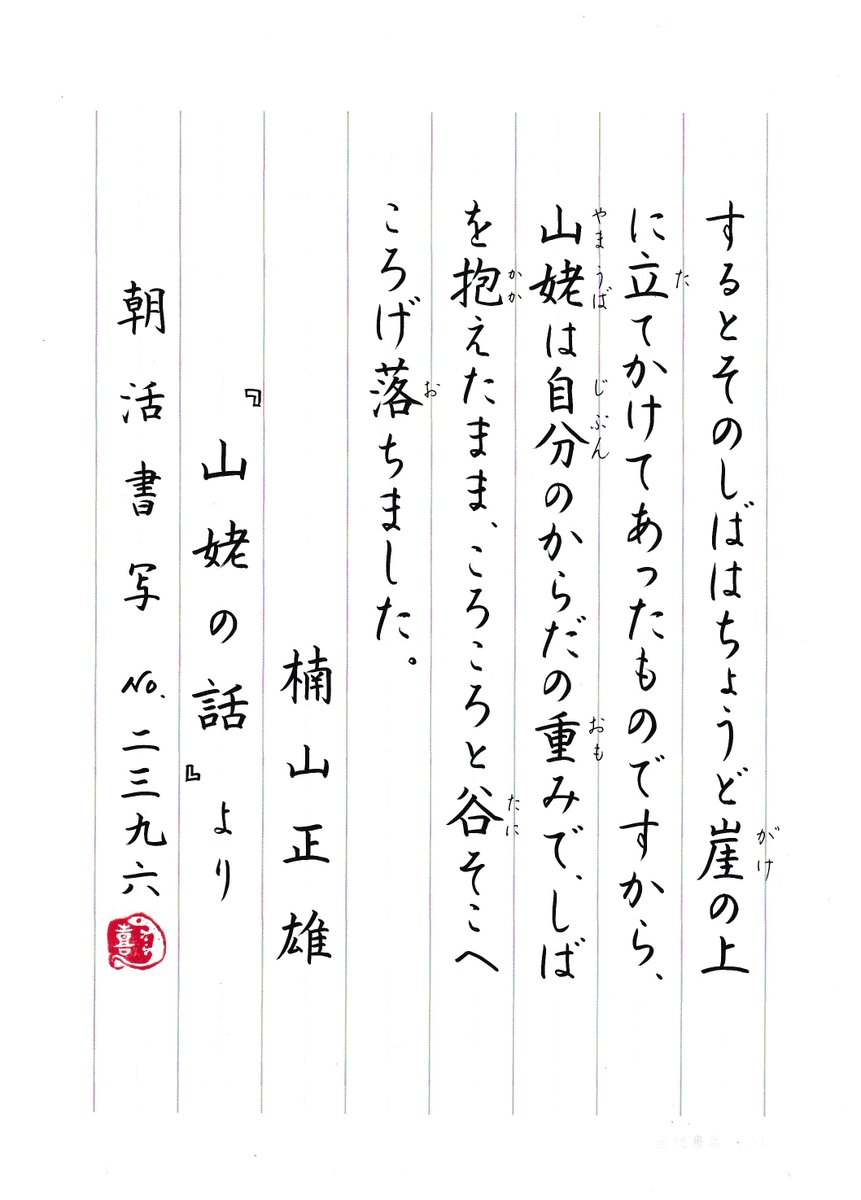 するとそのしばはちょうど崖の上
がけ
に立てかけてあったものですから、
た
山姥は自分のからだの重みで、しば
やまうば じぶん おも
を抱えたまま、ころころと谷そこへ
かか たに
ころげ落ちました。
お
楠山正雄
『山姥の話』より
朝活書写 No.二三九六
喜